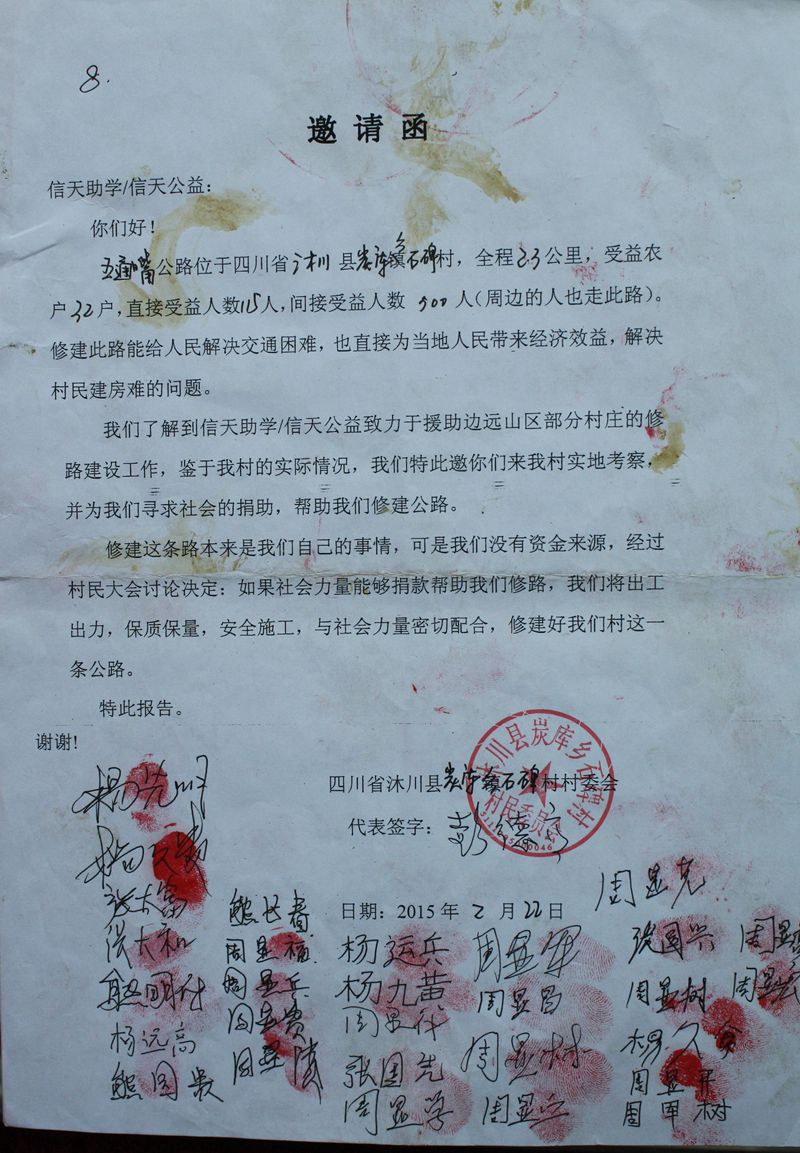 8.
邀请函
信天助学/信天公益：
你们好！
五通嘴公路位于四川省沐川县炭库乡石碑村，全程2.3公里，受益农
户32户，直接受益人数115人，间接受益人数 900人（周边的人也走此路）。
修建此路能给人民解决交通困难，也直接为当地人民带来经济效益，解决
村民建房难的问题。
我们了解到信天助学/信天公益致力于援助边远山区部分村庄的修
路建设工作，鉴于我村的实际情况，我们特此邀你们来我村实地考察，
并为我们寻求社会的捐助，帮助我们修建公路。
修建这条路本来是我们自己的事情，可是我们没有资金来源，经过
村民大会讨论决定：如果社会力量能够捐款帮助我们修路，我们将出工
出力，保质保量，安全施工，与社会力量密切配合，修建好我们村这一
条公路。
特此报告。
谢谢!
四川省沐川县炭库镇石碑村村委会
代表签字：
沐川县炭库乡石碑村
村民委员会
日期：2015年2月22日
张大富
张大和
熊明
杨远高
熊国
熊长春
周显福
周显兵
周显贵
周显
杨运兵
杨九
周显
张国先
周显学
周显军
周显昌
周显林
周显立
周显
张国兴
周显树
杨久
周显平
周军树
周显
周显